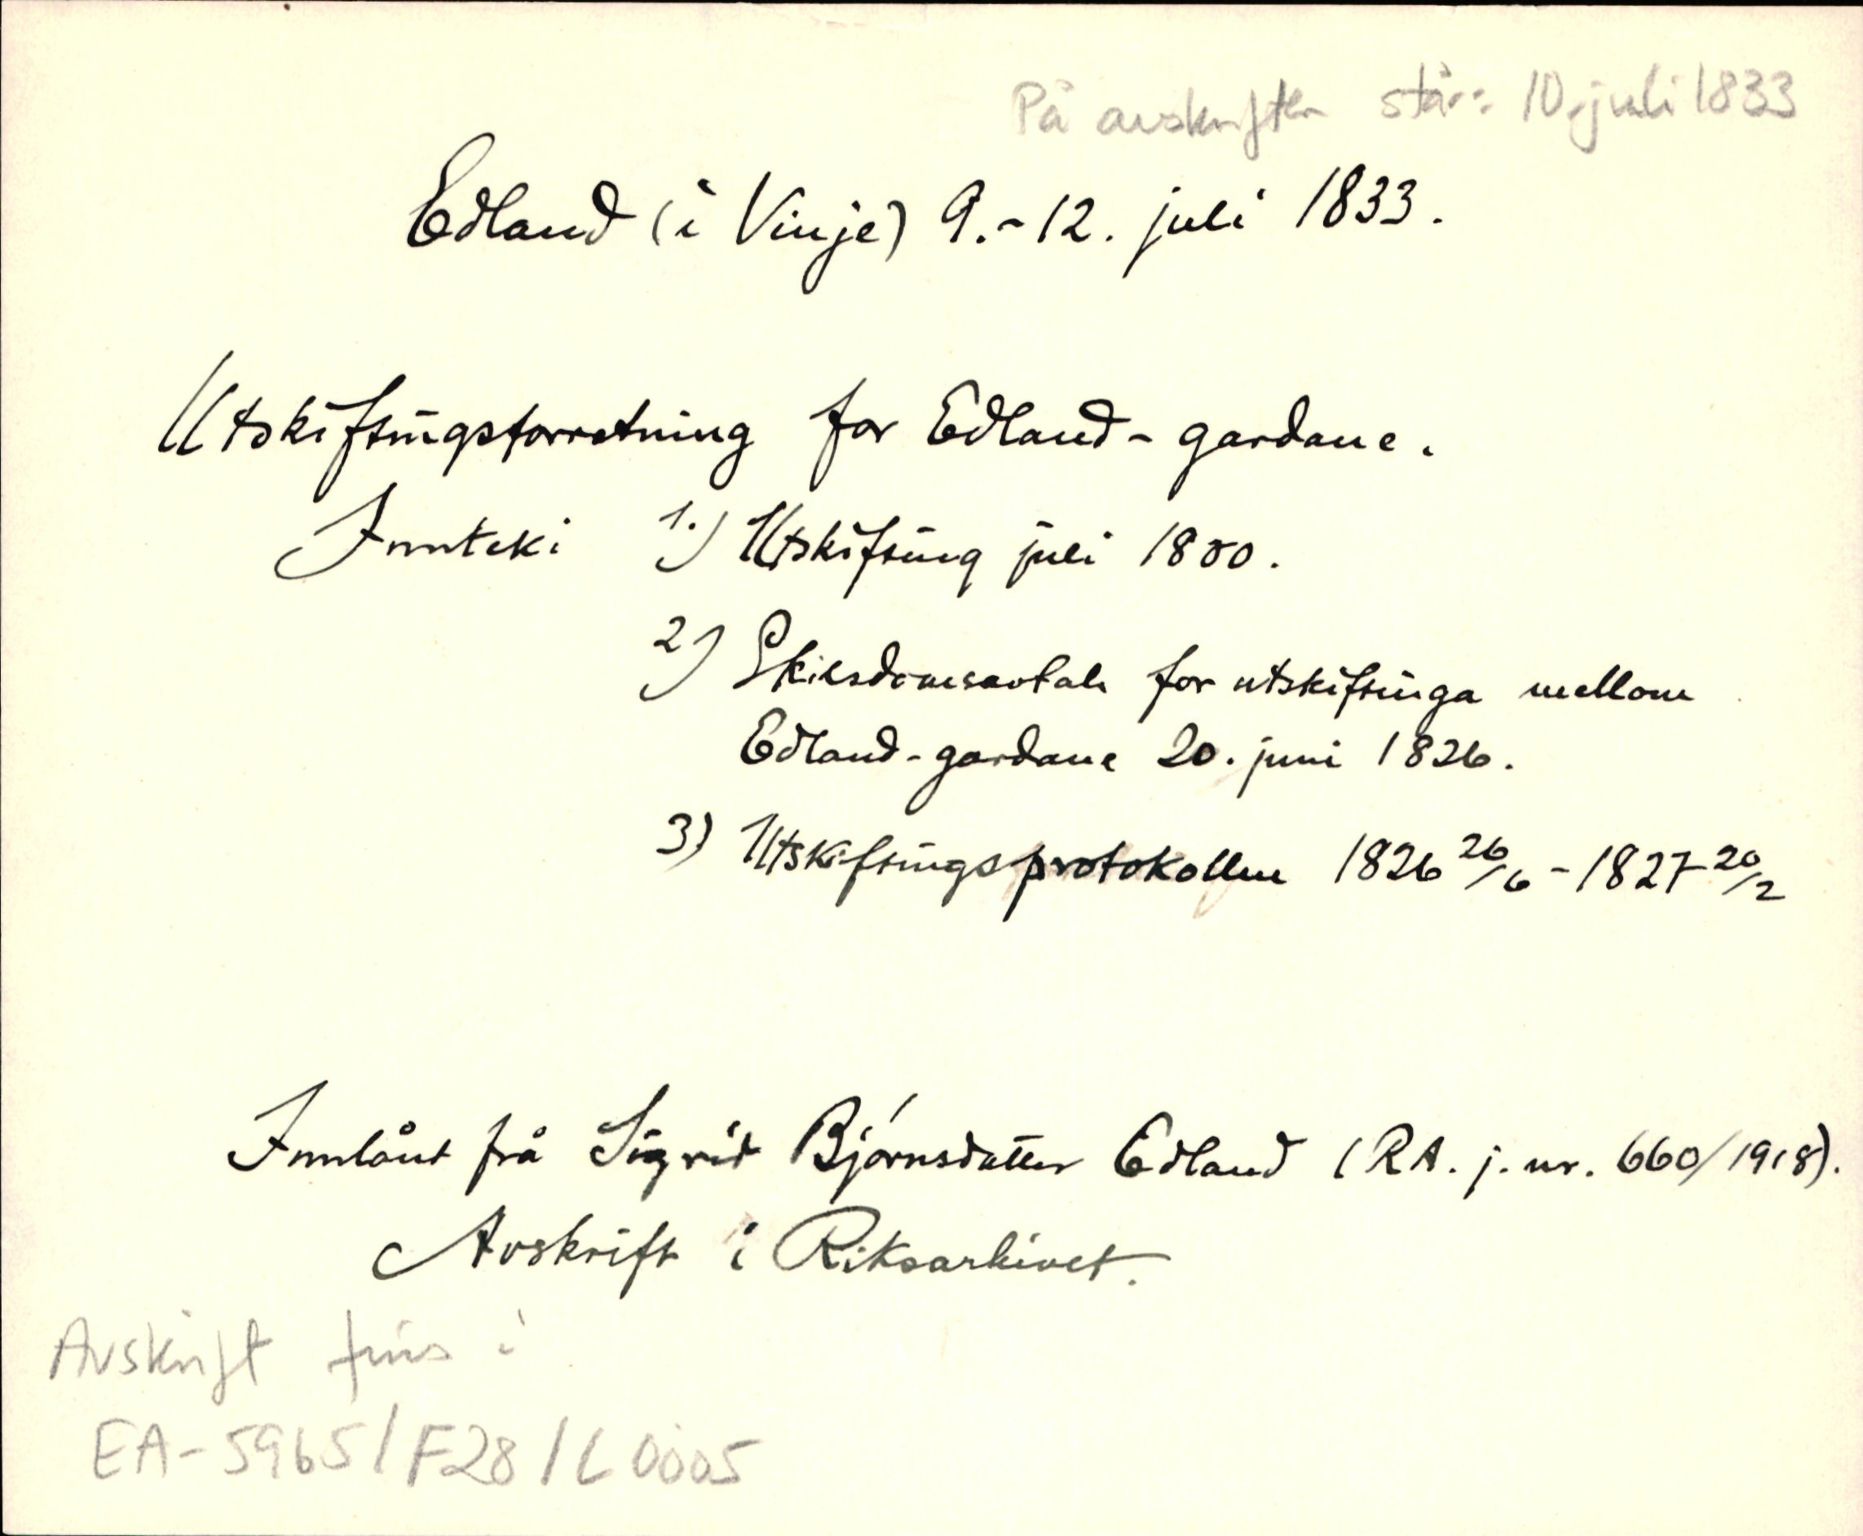 På avskriften står: 10. juli 1833
Edland (i Vinje) 9.-12. juli 1833.
Utskiftingsforretning for Edland-gardane.
Innteki 1.) Utskifting juli 1800.
2) Skilsdomsavtale for utskiftinga mellom
Edland-gardane 20. juni 1826.
3) Utskiftingsprotokollen 1826 26/6 - 1827 20/2
Innlånt frå Sigrid Bjørnsdatter Edland (RA. j. nr. 660/1918).
Avskrift i Riksarkivet.
Avskrift fins i
EA-5965/F28/L0005